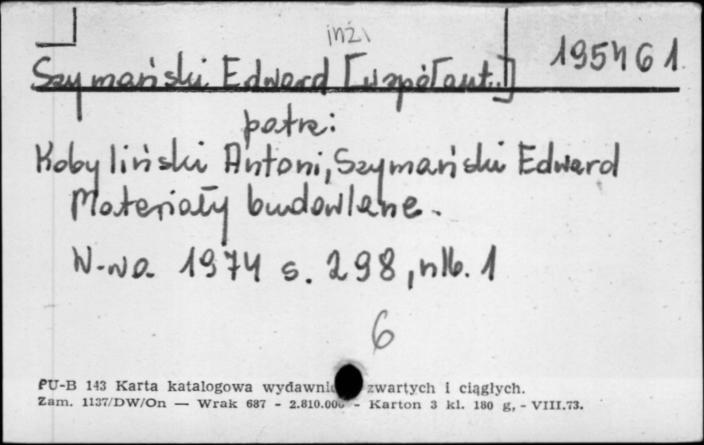 inż.
Szymański Edward [współaut.] 195461
patrz:
Kobyliński Antoni, Szymański Edward
Materiały budowlane.
W-wa 1974 s. 298, nlb. 1
6
PU-B 143 Karta katalogowa zwartych i ciągłych.
Zam. 1137/DW/On — Wrak 687 - - Karton 3 kl. 180 g, - VIII.73.